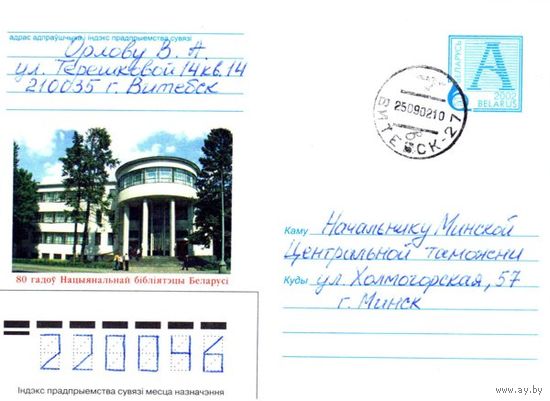 адрас адпраўшчыка, індэкс прадпрыемства сувязі
Орлову В. А.
ул. Терешковой 14 кв. 14
210035 г. Витебск
БЕЛАРУСЬ
A
2002
BELARUS
ВИТЕБСК-27
25090210
80 гадоў Нацыянальнай бібліятэцы Беларусі
Каму Начальнику Минской
Центральной таможни
Куды ул. Холмогорская, 57
г. Минск
220046
Індэкс прадпрыемства сувязі месца назначэння
www.ay.by